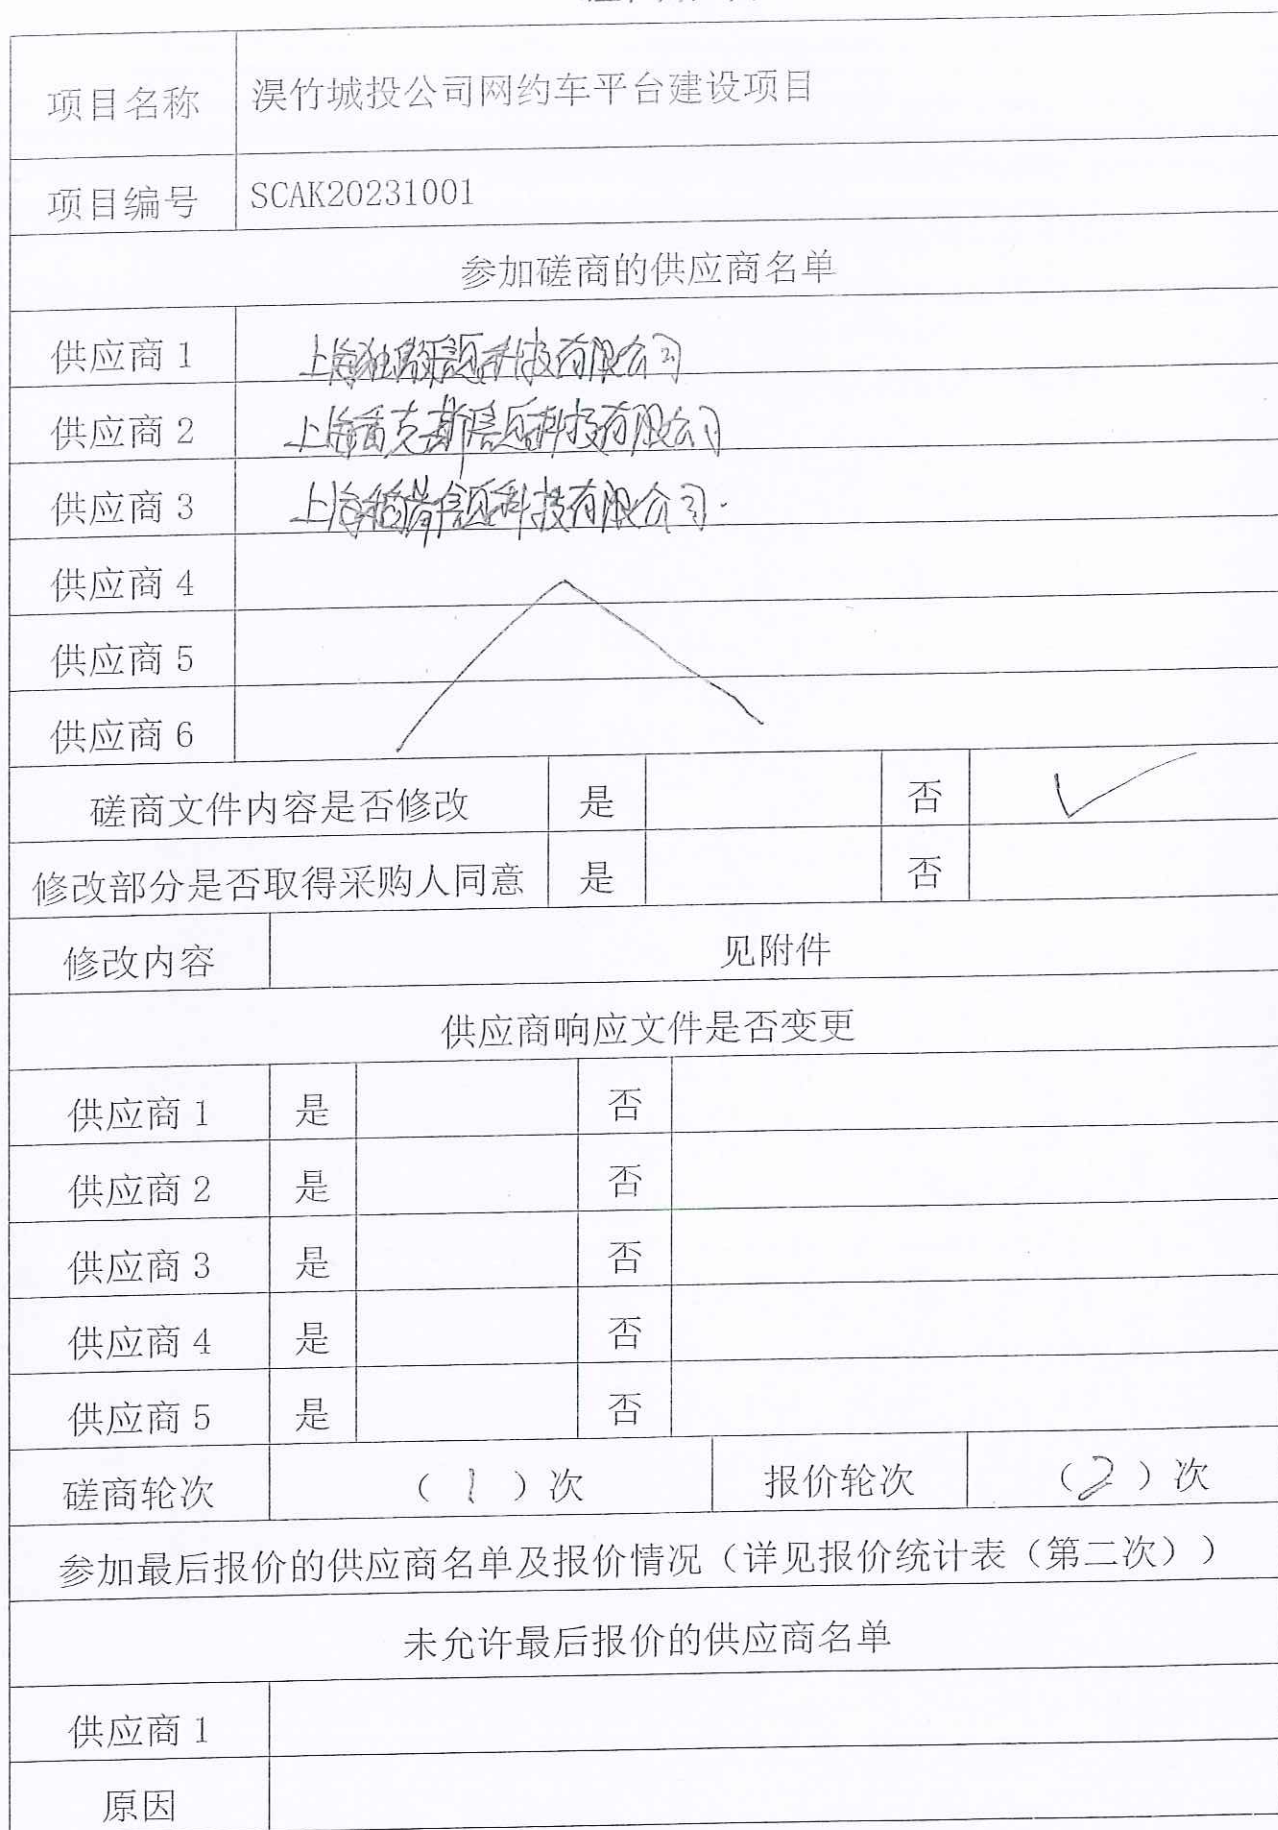 项目名称 淏竹城投公司网约车平台建设项目
项目编号 SCAK20231001
参加磋商的供应商名单
供应商1 上海 信息科技有限公司
供应商2 上海雷克斯信息科技有限公司
供应商3 上海稻 信息科技有限公司.
供应商4
供应商5
供应商6
磋商文件内容是否修改 是 否 ✓
修改部分是否取得采购人同意 是 否
修改内容 见附件
供应商响应文件是否变更
供应商1 是 否
供应商2 是 否
供应商3 是 否
供应商4 是 否
供应商5 是 否
磋商轮次 (1)次 报价轮次 (2)次
参加最后报价的供应商名单及报价情况(详见报价统计表(第二次))
未允许最后报价的供应商名单
供应商1
原因